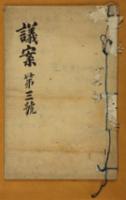 議案第三號